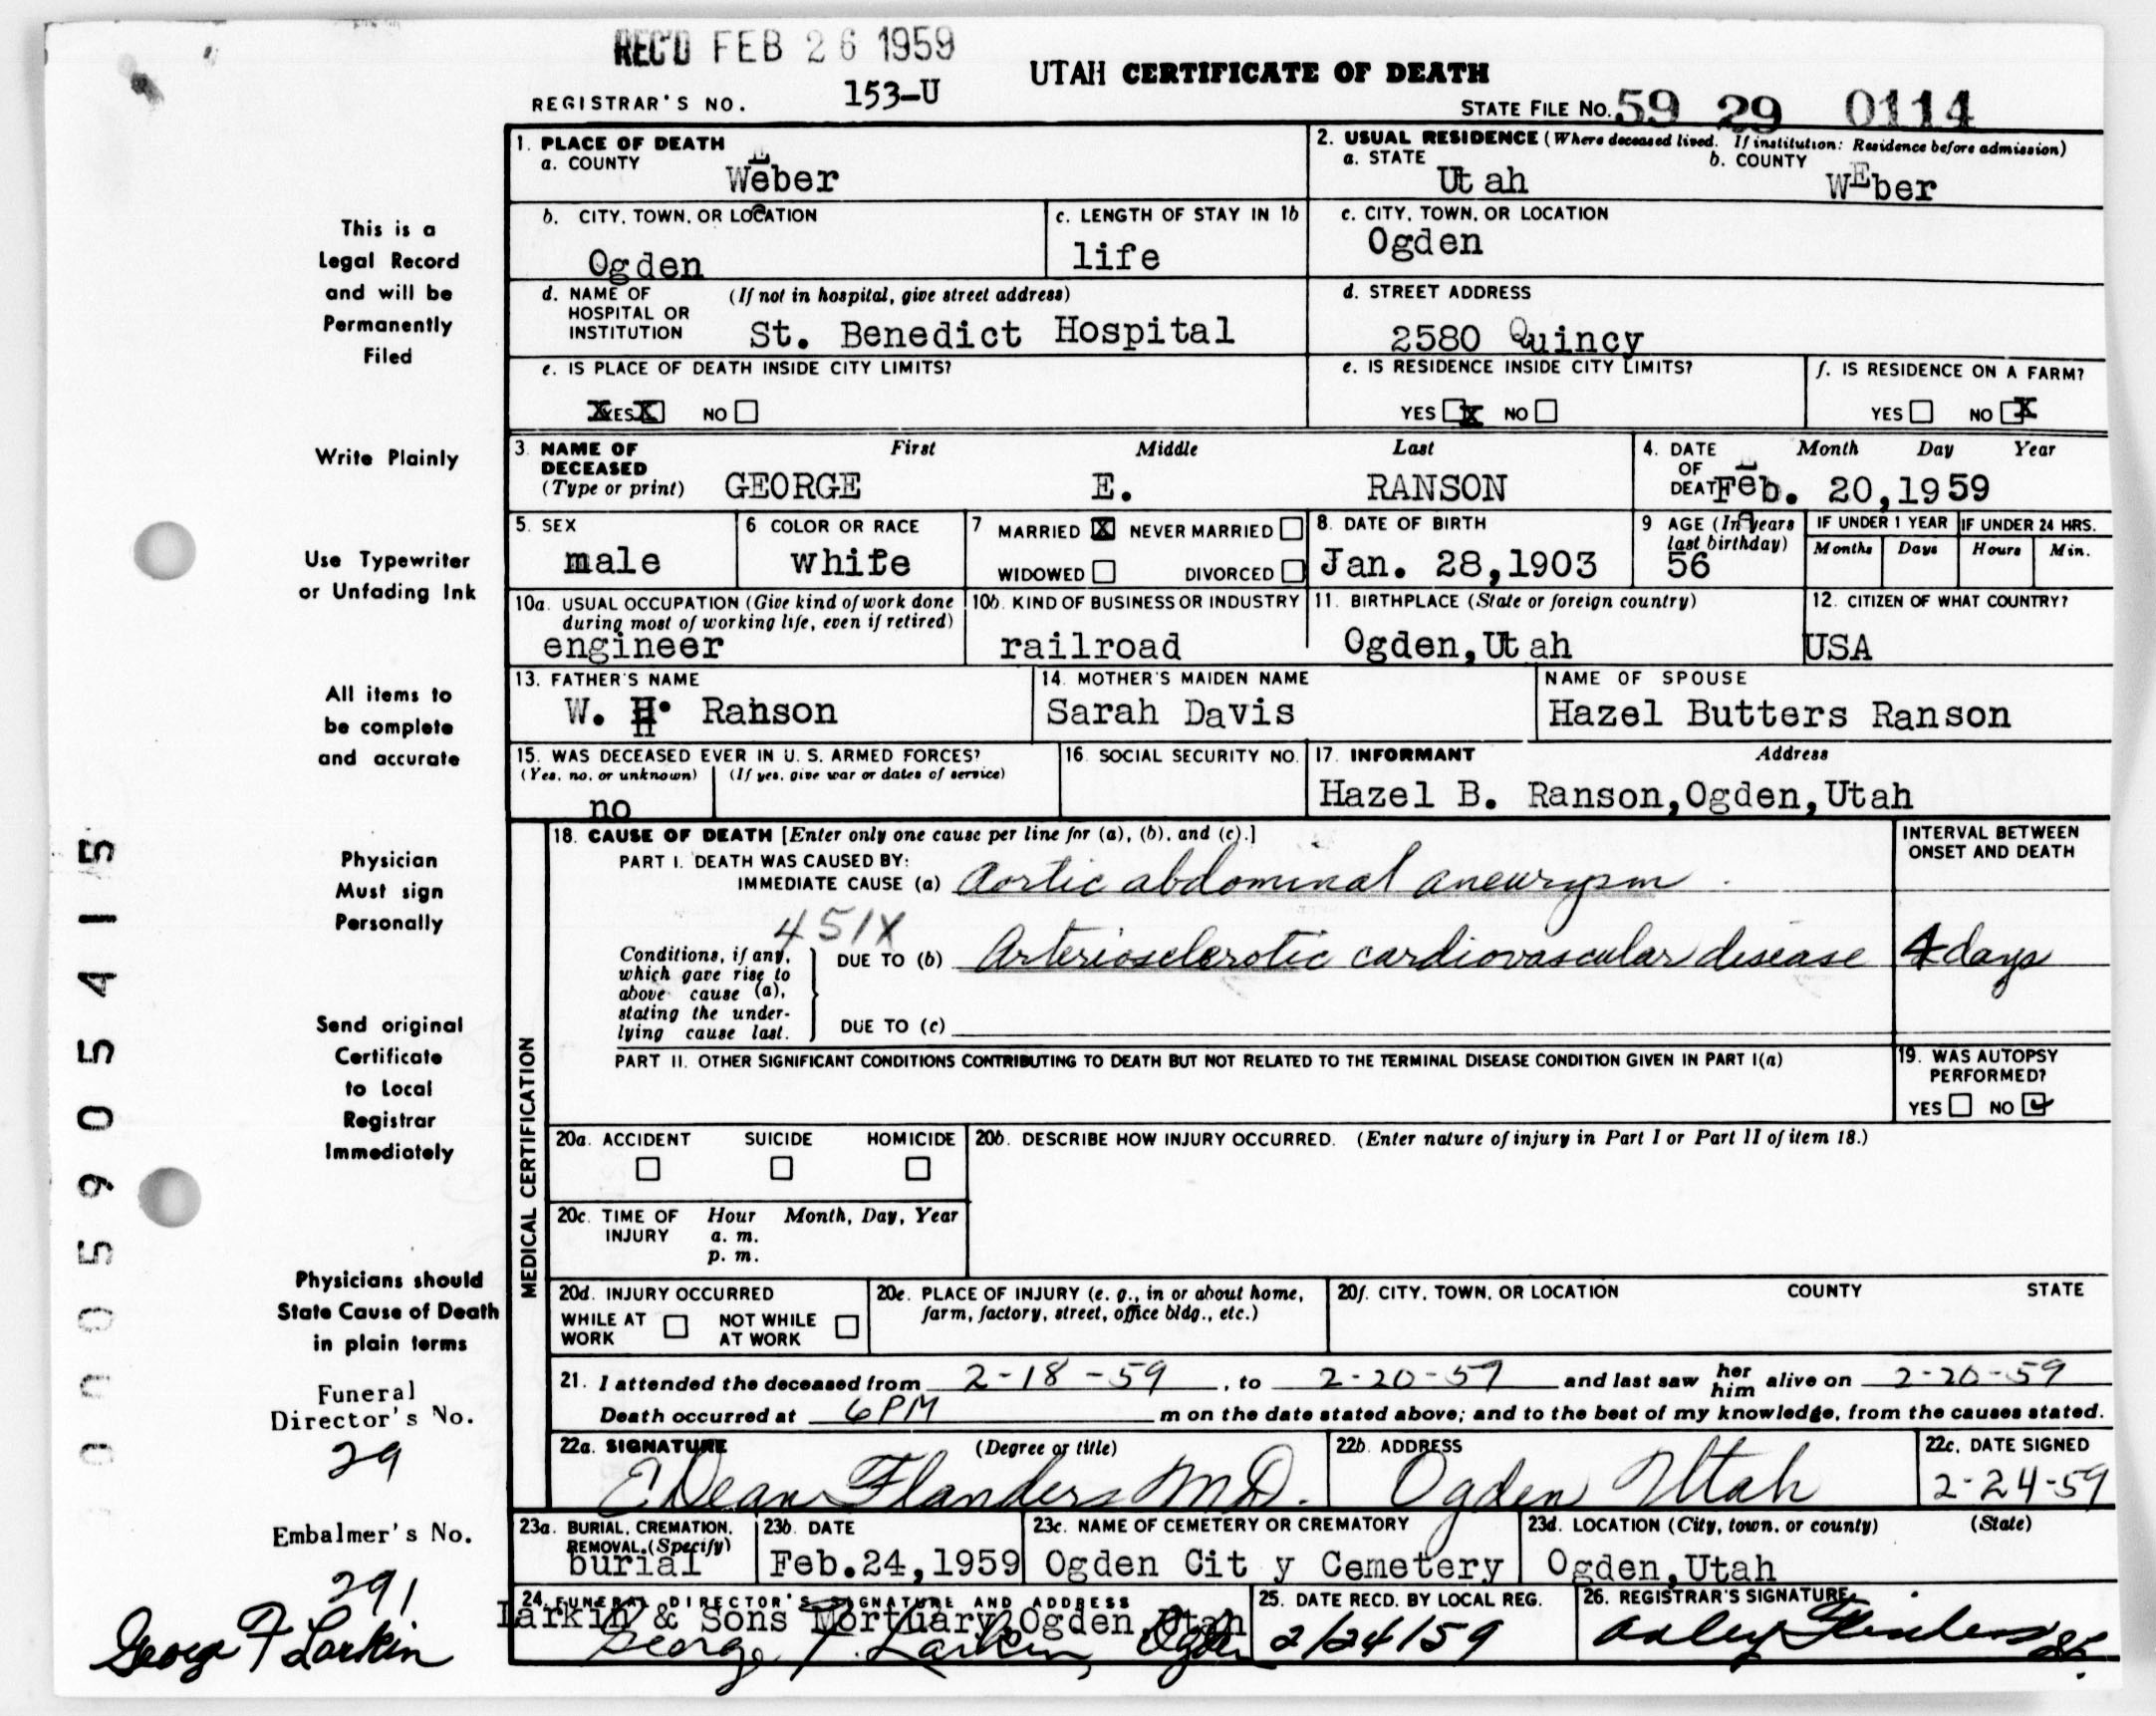 REC'D FEB 26 1959
UTAH CERTIFICATE OF DEATH
REGISTRAR'S NO. 153-U
STATE FILE No. 59 29 0114
1. PLACE OF DEATH
a. COUNTY
Weber
2. USUAL RESIDENCE (Where deceased lived. If institution: Residence before admission)
a. STATE
Utah
b. COUNTY
WEber
b. CITY, TOWN, OR LOCATION
Ogden
c. LENGTH OF STAY IN 1b
life
c. CITY, TOWN, OR LOCATION
Ogden
d. NAME OF HOSPITAL OR INSTITUTION
(If not in hospital, give street address)
St. Benedict Hospital
d. STREET ADDRESS
2580 Quincy
e. IS PLACE OF DEATH INSIDE CITY LIMITS?
XYES X NO
e. IS RESIDENCE INSIDE CITY LIMITS?
YES X NO
f. IS RESIDENCE ON A FARM?
YES NO X
3. NAME OF DECEASED
(Type or print)
First Middle Last
GEORGE E. RANSON
4. DATE OF DEATH
Month Day Year
Feb. 20,1959
5. SEX
male
6 COLOR OR RACE
white
7 MARRIED X NEVER MARRIED
WIDOWED DIVORCED
8. DATE OF BIRTH
Jan. 28,1903
9 AGE (In years last birthday)
56
IF UNDER 1 YEAR
Months Days
IF UNDER 24 HRS.
Hours Min.
10a. USUAL OCCUPATION (Give kind of work done during most of working life, even if retired)
engineer
10b. KIND OF BUSINESS OR INDUSTRY
railroad
11. BIRTHPLACE (State or foreign country)
Ogden,Utah
12. CITIZEN OF WHAT COUNTRY?
USA
13. FATHER'S NAME
W. H. Ranson
14. MOTHER'S MAIDEN NAME
Sarah Davis
NAME OF SPOUSE
Hazel Butters Ranson
15. WAS DECEASED EVER IN U. S. ARMED FORCES?
(Yes, no, or unknown) (If yes, give war or dates of service)
no
16. SOCIAL SECURITY NO.
17. INFORMANT Address
Hazel B. Ranson,Ogden,Utah
MEDICAL CERTIFICATION
18. CAUSE OF DEATH [Enter only one cause per line for (a), (b), and (c).]
INTERVAL BETWEEN ONSET AND DEATH
PART I. DEATH WAS CAUSED BY:
IMMEDIATE CAUSE (a) Aortic abdominal aneurysm
451X
Conditions, if any, which gave rise to above cause (a), stating the underlying cause last.
DUE TO (b) Arteriosclerotic cardiovascular disease 4 days
DUE TO (c)
PART II. OTHER SIGNIFICANT CONDITIONS CONTRIBUTING TO DEATH BUT NOT RELATED TO THE TERMINAL DISEASE CONDITION GIVEN IN PART I(a)
19. WAS AUTOPSY PERFORMED?
YES NO
20a. ACCIDENT SUICIDE HOMICIDE
20b. DESCRIBE HOW INJURY OCCURRED. (Enter nature of injury in Part I or Part II of item 18.)
20c. TIME OF INJURY
Hour Month, Day, Year
a. m.
p. m.
20d. INJURY OCCURRED
WHILE AT WORK NOT WHILE AT WORK
20e. PLACE OF INJURY (e. g., in or about home, farm, factory, street, office bldg., etc.)
20f. CITY, TOWN, OR LOCATION COUNTY STATE
21. I attended the deceased from 2-18-59, to 2-20-59 and last saw her him alive on 2-20-59
Death occurred at 6PM m on the date stated above; and to the best of my knowledge, from the causes stated.
22a. SIGNATURE (Degree or title)
E Dean Flanders M.D.
22b. ADDRESS
Ogden Utah
22c. DATE SIGNED
2-24-59
23a. BURIAL, CREMATION, REMOVAL, (Specify)
burial
23b. DATE
Feb.24,1959
23c. NAME OF CEMETERY OR CREMATORY
Ogden Cit y Cemetery
23d. LOCATION (City, town, or county) (State)
Ogden,Utah
24. FUNERAL DIRECTOR'S SIGNATURE AND ADDRESS
Larkin & Sons Mortuary,Ogden,Utah
George F. Larkin, Ogden
25. DATE RECD. BY LOCAL REG.
2/24/59
26. REGISTRAR'S SIGNATURE
This is a
Legal Record
and will be
Permanently
Filed
Write Plainly
Use Typewriter
or Unfading Ink
All items to
be complete
and accurate
Physician
Must sign
Personally
Send original
Certificate
to Local
Registrar
Immediately
Physicians should
State Cause of Death
in plain terms
Funeral
Director's No.
29
Embalmer's No.
291
George F Larkin
005905415